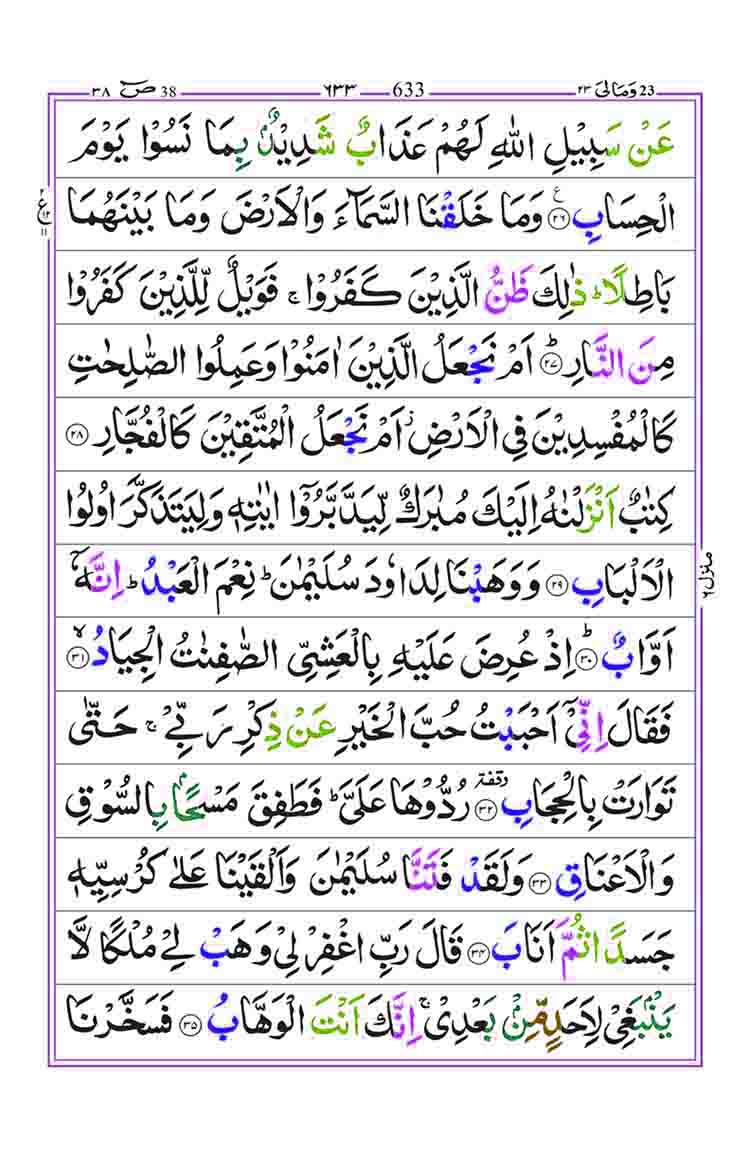 ومالی ٢٣ 23 633 ٦٣٣ ص ٣٨ 38
عَنْ سَبِيْلِ اللّٰهِ لَهُمْ عَذَابٌ شَدِيْدٌۢ بِمَا نَسُوْا يَوْمَ
الْحِسَابِ ﴿٢٦﴾ ع وَمَا خَلَقْنَا السَّمَآءَ وَالْاَرْضَ وَمَا بَيْنَهُمَا
بَاطِلًا ؕ ذٰلِكَ ظَنُّ الَّذِيْنَ كَفَرُوْا ۚ فَوَيْلٌ لِّلَّذِيْنَ كَفَرُوْا
مِنَ النَّارِ ؕ ﴿٢٧﴾ اَمْ نَجْعَلُ الَّذِيْنَ اٰمَنُوْا وَعَمِلُوا الصّٰلِحٰتِ
كَالْمُفْسِدِيْنَ فِي الْاَرْضِ ز اَمْ نَجْعَلُ الْمُتَّقِيْنَ كَالْفُجَّارِ ﴿٢٨﴾
كِتٰبٌ اَنْزَلْنٰهُ اِلَيْكَ مُبٰرَكٌ لِّيَدَّبَّرُوْۤا اٰيٰتِهٖ وَلِيَتَذَكَّرَ اُولُوا
الْاَلْبَابِ ﴿٢٩﴾ وَوَهَبْنَا لِدَاوٗدَ سُلَيْمٰنَ ؕ نِعْمَ الْعَبْدُ ؕ اِنَّهٗۤ
اَوَّابٌ ؕ ﴿٣٠﴾ اِذْ عُرِضَ عَلَيْهِ بِالْعَشِيِّ الصّٰفِنٰتُ الْجِيَادُ ۙ ﴿٣١﴾
فَقَالَ اِنِّيْۤ اَحْبَبْتُ حُبَّ الْخَيْرِ عَنْ ذِكْرِ رَبِّيْ ۚ حَتّٰى
تَوَارَتْ بِالْحِجَابِ ﴿٣٢﴾ وقفة رُدُّوْهَا عَلَيَّ ؕ فَطَفِقَ مَسْحًۢا بِالسُّوْقِ
وَالْاَعْنَاقِ ﴿٣٣﴾ وَلَقَدْ فَتَنَّا سُلَيْمٰنَ وَاَلْقَيْنَا عَلٰى كُرْسِيِّهٖ
جَسَدًا ثُمَّ اَنَابَ ﴿٣٤﴾ قَالَ رَبِّ اغْفِرْ لِيْ وَهَبْ لِيْ مُلْكًا لَّا
يَنْۢبَغِيْ لِاَحَدٍ مِّنْۢ بَعْدِيْ ۚ اِنَّكَ اَنْتَ الْوَهَّابُ ﴿٣٥﴾ فَسَخَّرْنَا
منزل ٦